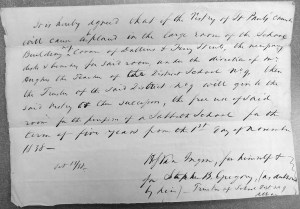 It is hereby agreed that if the Vestry of St Pauls Church
will cause to placed in the large room of the School
Building, Corner of Dallius & Ferry Streets, the necessary
desks & benches for said room under the direction of Mr
Hughes the Teacher of the District School No 9, then
the Trustees of the said District No 9 will give to the
said Vestry or their successors, the free use of said
room for the purposes of a Sabbath School for the
term of five years from the 1st day of November
1838 —
for himself &
for Stephen B. Gregory, (as authorized
by him) — Trustees of School Dist No 9